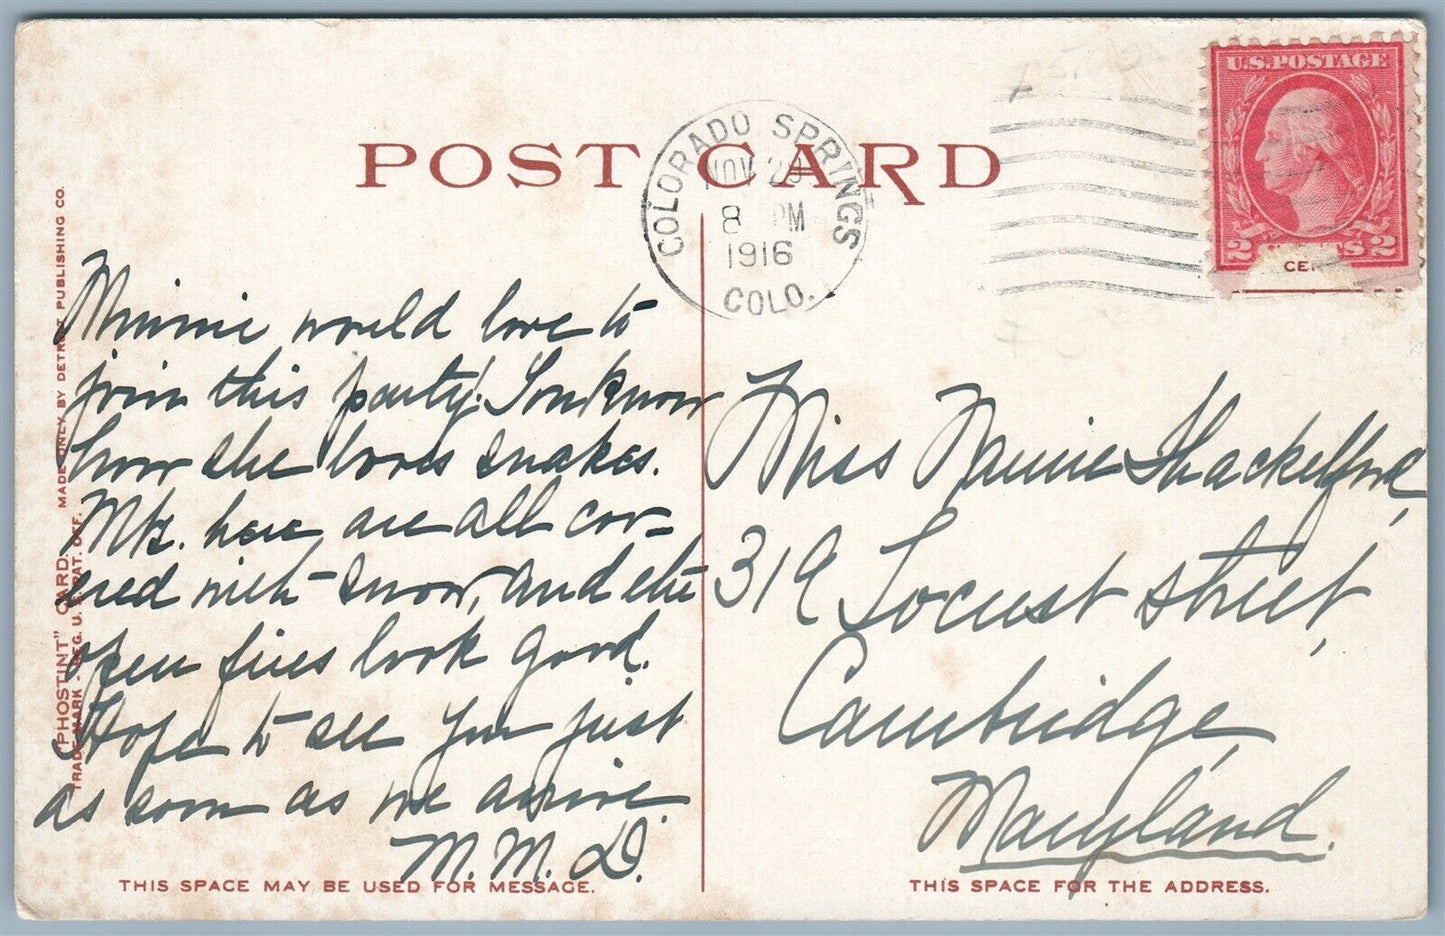 POST CARD
COLORADO SPRINGS
NOV 29
8 PM
1916
COLO.
U.S. POSTAGE
2 CENTS 2
CEN
"PHOSTINT" CARD. MADE ONLY BY DETROIT PUBLISHING CO.
TRADE MARK - REG. U. S. PAT. OFF.
Minnie would love to
join this party! You know
how she loves snakes.
Mts. here are all cov-
ered with snow, and the
open fires look good.
Hope to see you just
as soon as we arrive.
M. M. D.
Miss Nannie Shackelford,
319 Locust Street,
Cambridge,
Maryland.
THIS SPACE MAY BE USED FOR MESSAGE.
THIS SPACE FOR THE ADDRESS.